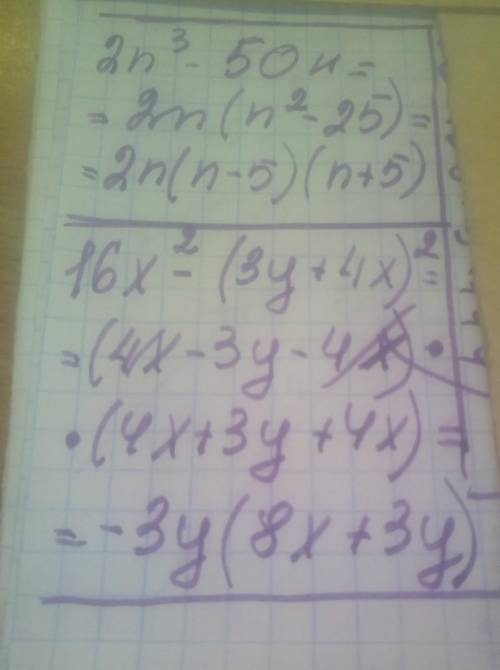 2n³ - 50n =
= 2n(n² - 25) =
= 2n(n-5)(n+5)
16x² - (3y+4x)² =
= (4x - 3y - 4x) •
• (4x + 3y + 4x) =
= -3y(8x + 3y)